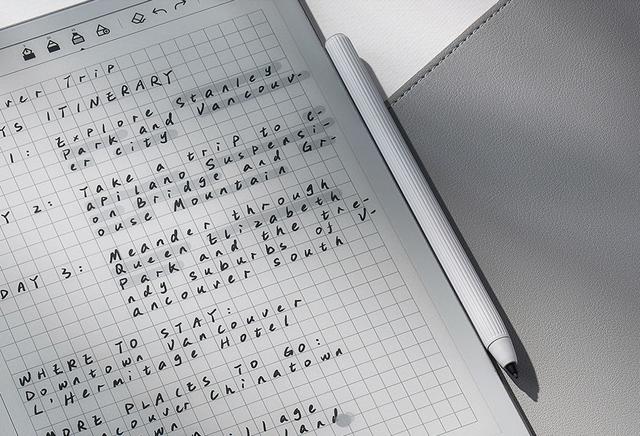 ver Trip
YS ITINERARY
1: Explore Stanley
Park and Vancouv-
er city
Y 2: Take a trip to C-
apilano Suspensi-
on Bridge and Gr-
ouse Mountain
DAY 3: Meander through
Queen Elizabeth
Park and the tre-
ndy suburbs of V-
ancouver south
WHERE TO STAY:
Downtown Vancouver
L'Hermitage Hotel
MORE PLACES TO GO:
couver Chinatown
illage
land